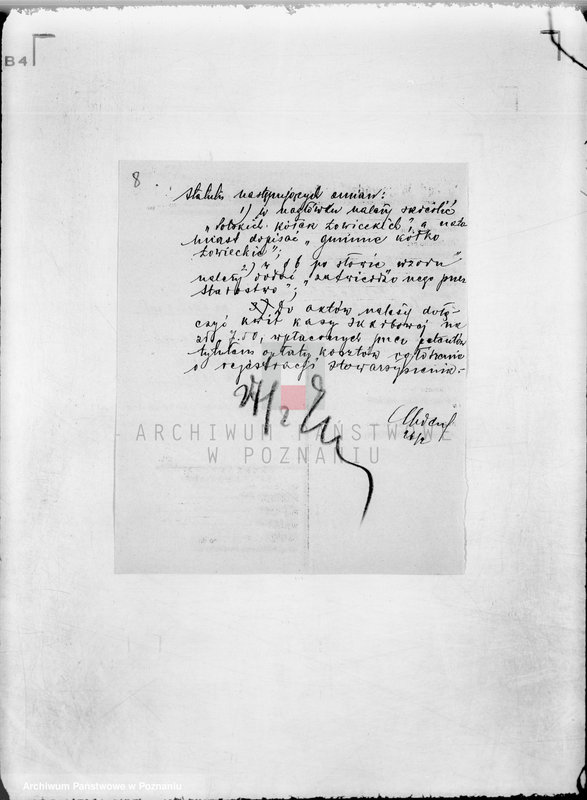 B4
8
statutu następujących zmian:
1) w nagłówku należy skreślić
„Polskich Kółek Łowieckich”, a nato
miast dopisać „gminne kółko
Łowieckie”;
2) w § 6 po słowie „wzoru”
należy dodać „zatwierdzonego przez
Starostwo”;
3) Do aktów należy dołą-
czyć kwit Kasy Skarbowej na
zł. 7.50, wpłaconych przez petentów
tytułem opłaty kosztów ogłoszenia
o rejestracji stowarzyszenia.-
24/2
24/2
ARCHIWUM PAŃSTWOWE
W POZNANIU
Archiwum Państwowe w Poznaniu